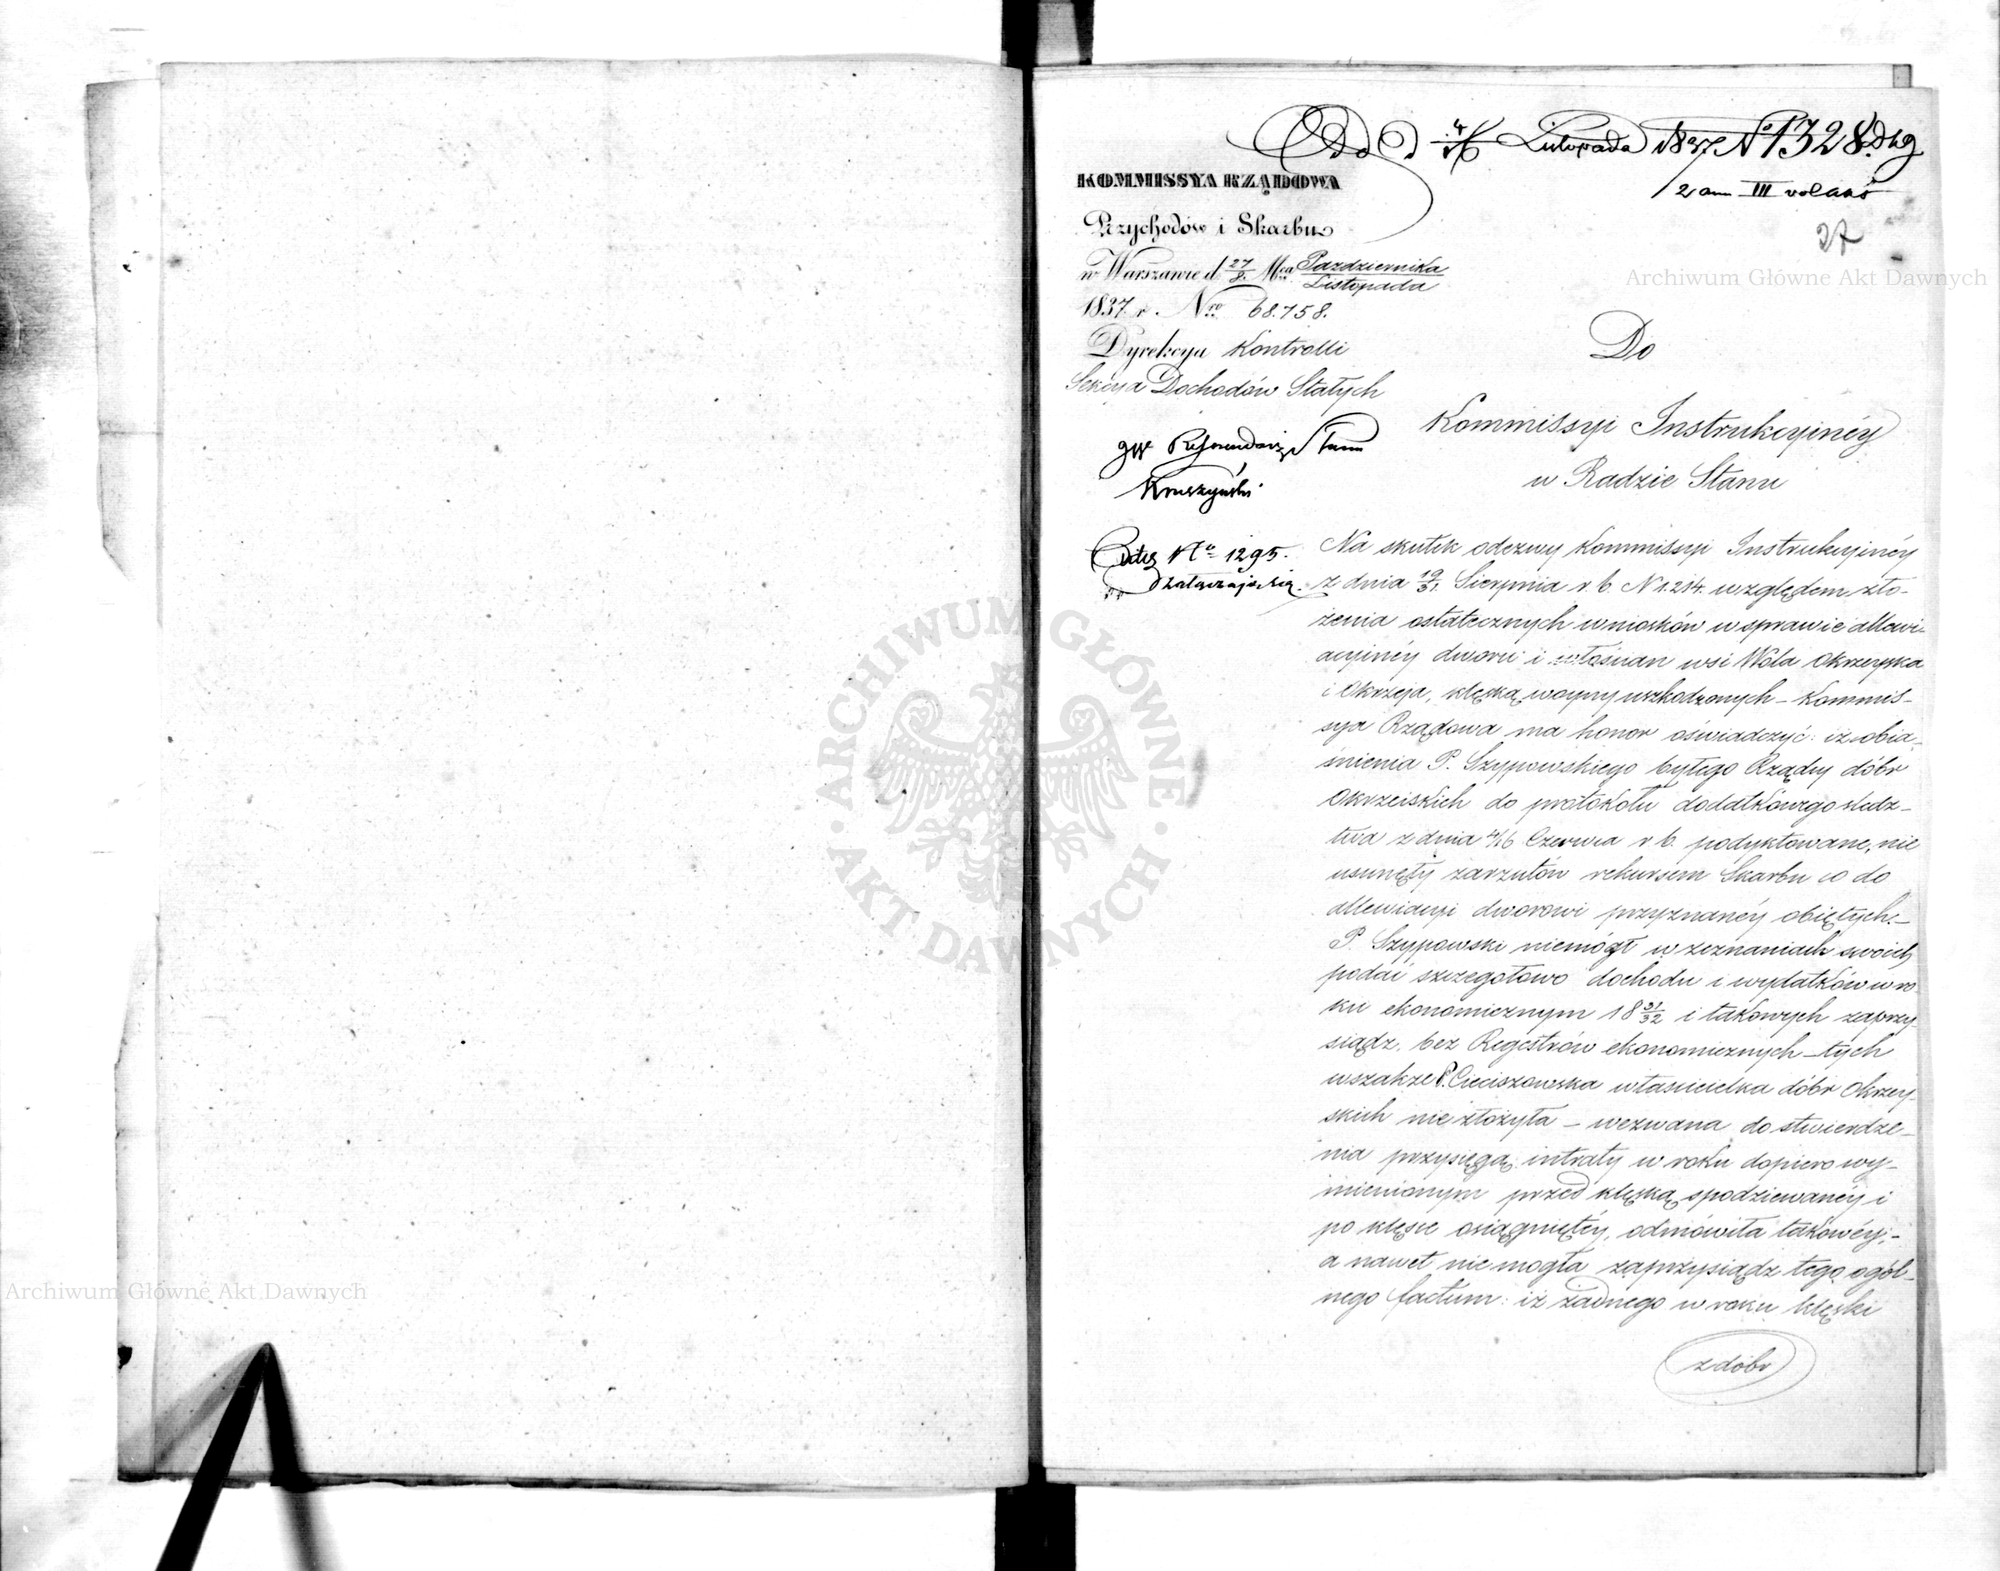 Odd 4/16 Listopada 1837 No 1328.
KOMMISSYA RZĄDOWA
Przychodów i Skarbu
w Warszawie d. 27/8. Mca Pazdziernika/Listopada
1837 r. Nro 68.758.
Dyrekcya Kontrolli
Sekcya Dochodów Stałych
JW Referendarz Stanu
Kruszyński
No 1295.
załączają się
27
Archiwum Główne Akt Dawnych
Do
Kommissyi Instrukcyinéy
w Radzie Stanu
Na skutek odezwy Kommissyi Instrukcyinéy
z dnia 19/31. Sierpnia r. b. N 1.214. względem zło-
żenia ostatecznych wniosków w sprawie allewi-
acyinéy dworu i włościan wsi Wola Okrzeyska
i Okrzeja, klęską woyny uszkodzonych – Kommis-
sya Rządowa ma honor oświadczyć: iż obia-
śnienia P. Szypowskiego byłego Rządcy dóbr
Okrzeiskich do protokołu dodatkowego śledz-
twa z dnia 4/16 Czerwca r. b. podyktowane, nie
usunęły zarzutów rekursem Skarbu co do
allewiacyi dworowi przyznanéy obiętych. –
P. Szypowski niemógł w zeznaniach swoich
podać szczegółowo dochodu i wydatków w ro-
ku ekonomicznym 18 31/32 i takowych zaprzy-
siądz, bez Regestrów ekonomicznych – tych
wszakże P. Cieciszowska właścicielka dóbr Okrzey-
skich nie złożyła – wezwana do stwierdze-
nia przysięgą intraty w roku dopiero wy-
mienionym przed klęską spodziewanéy i
po klęsce osiągniętéy, odmówiła takowéy, –
a nawet nie mogła zaprzysiądz tego ogól-
nego factum: iż żadnego w roku klęski
z dóbr
ARCHIWUM GŁÓWNE
AKT DAWNYCH
Archiwum Główne Akt Dawnych